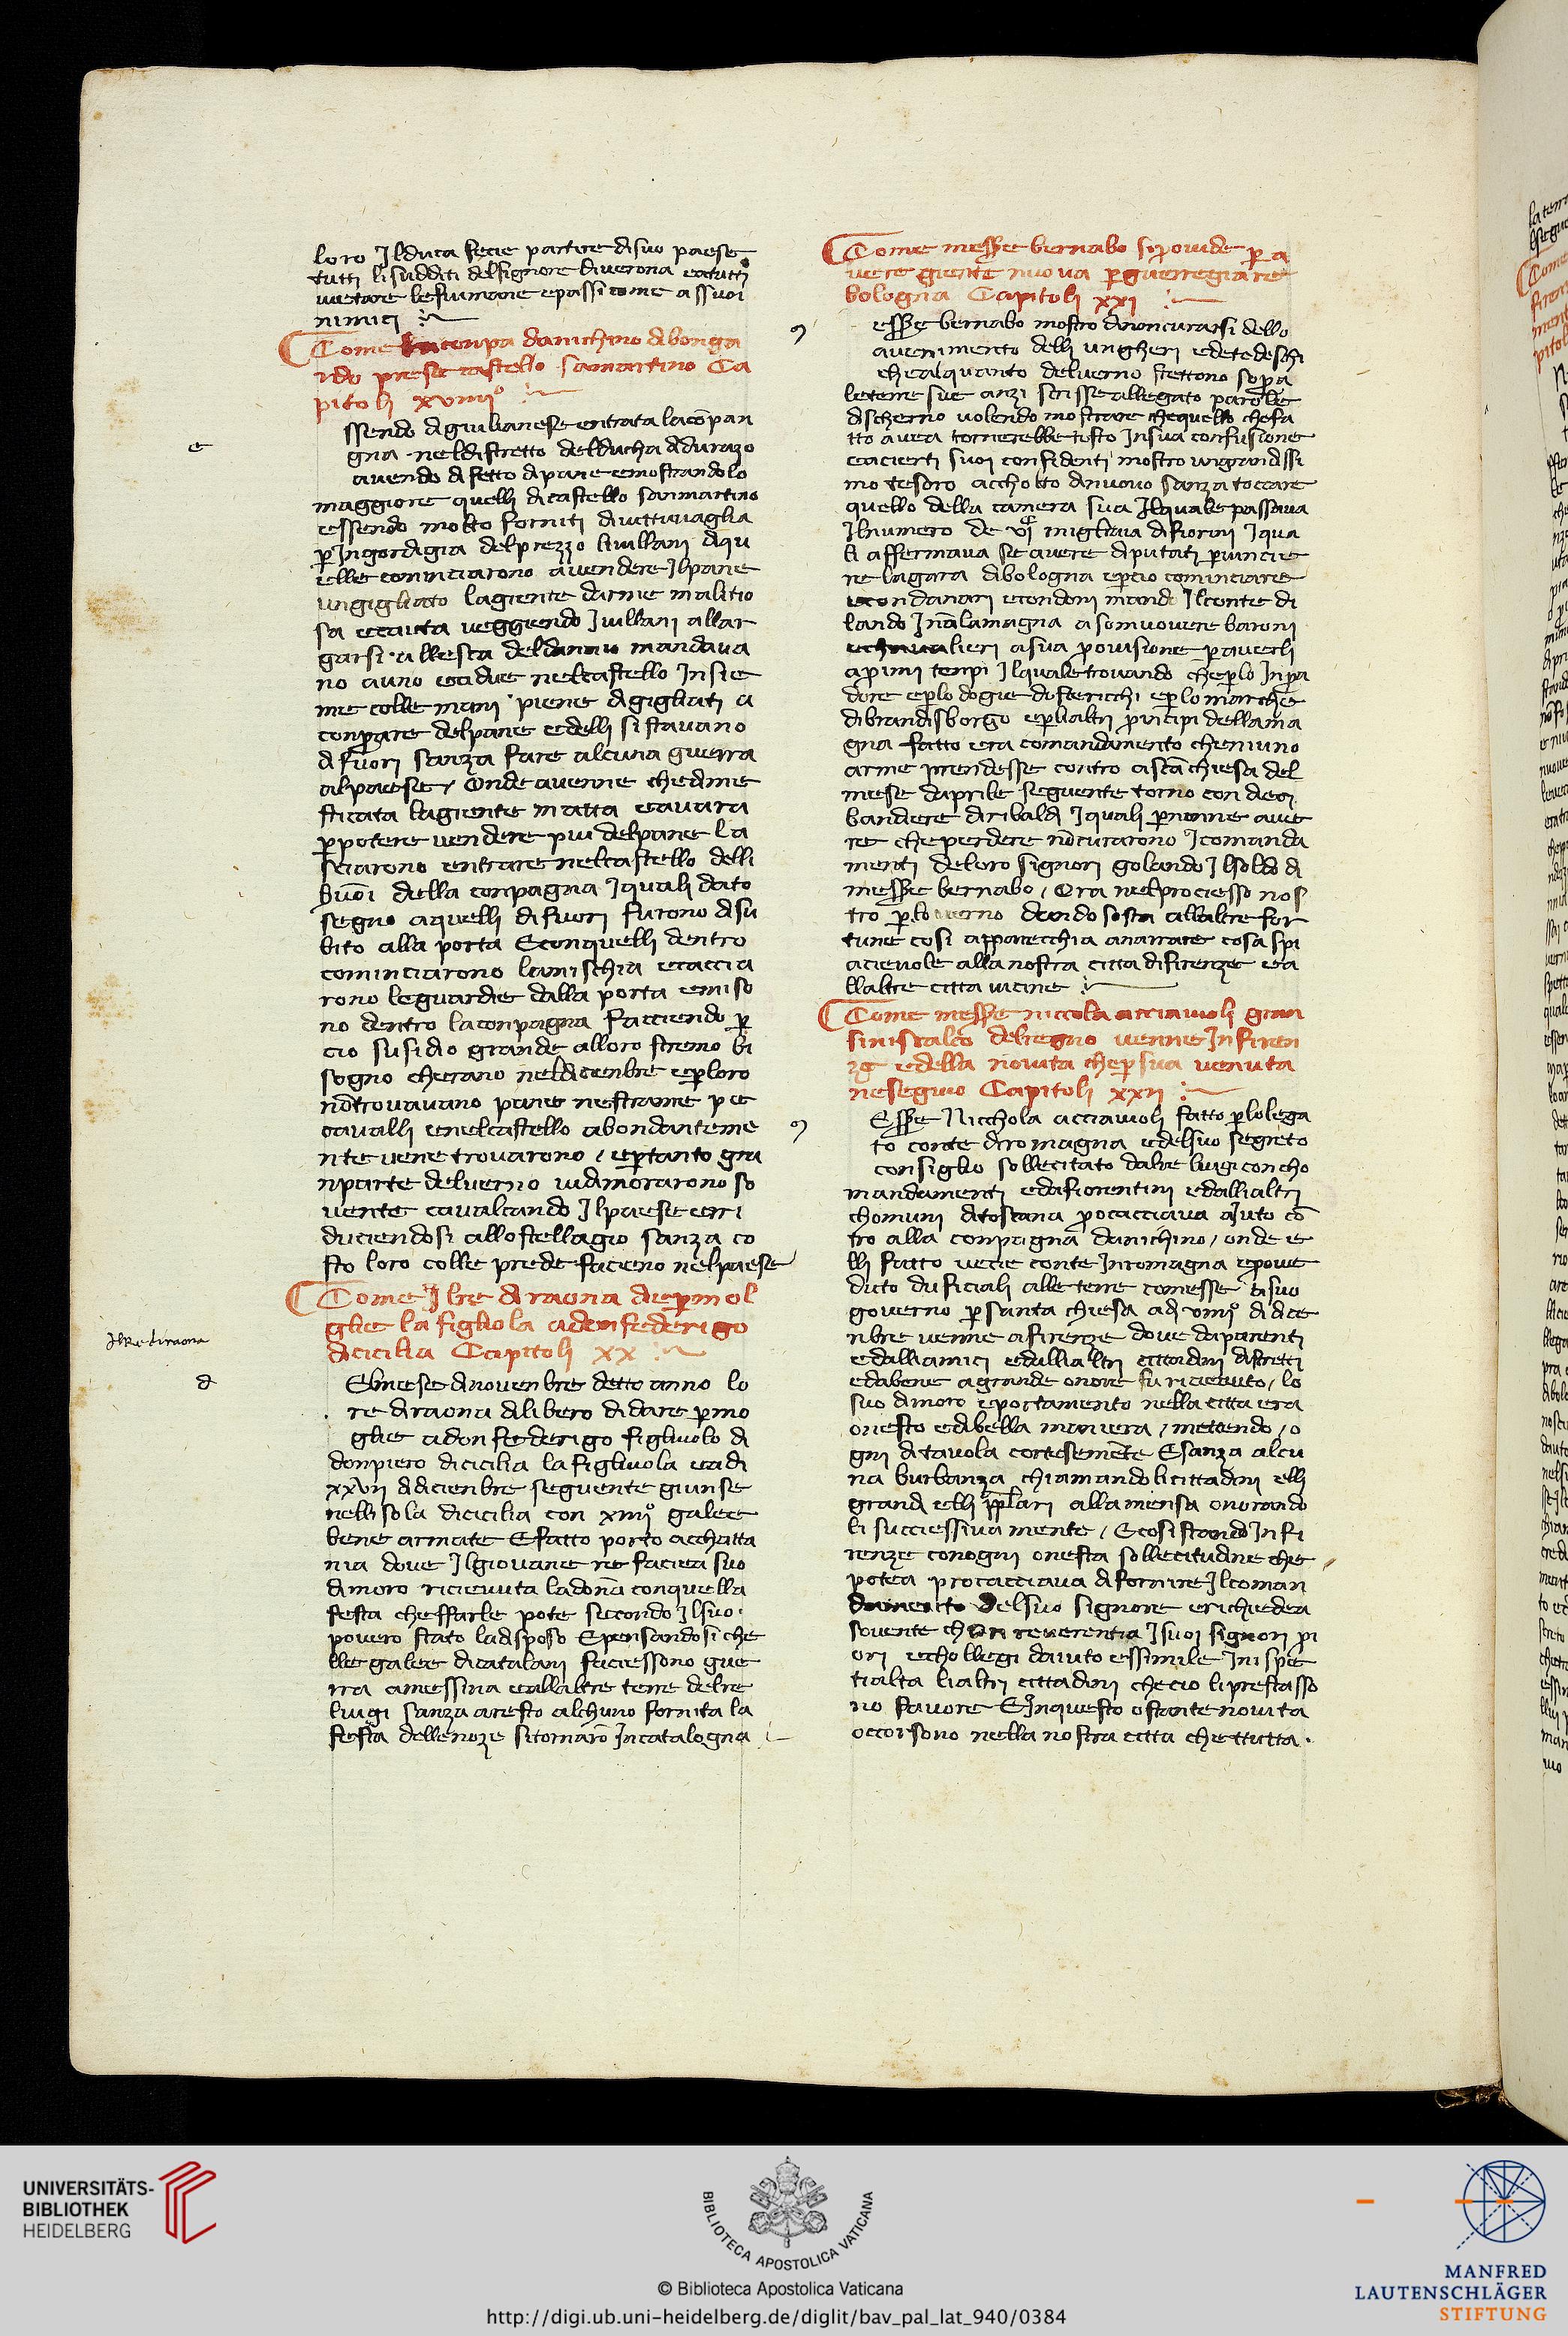 loro Jlduca fecie partire disuo paese
tutti lisudditi delsignore diuerona eatutti
uietare lefiumane epassi come assuoi
nimici
Come la conpa danichino dibonga
rdo prese castello samartino Ca
pitolj xviiijº
e
ssendo digiulianese entrata lacōpan
gna neldistretto delducha didurazo
auendo difetto dipane emostrandolo
maggiore quellj dicastello sanmartino
essendo molto forniti diuittuuaglia
ꝑJngordigia delprezzo liuillanj diqu
ielle cominciarono auendere Jlpane
ungigliato lagiente darme malitio
sa ecauta veggiendo Juillanj allar
garsi allesca deldanaio mandaua
no auno eadue nelcastello Jnsie
me colle manj piene digigliati a
conprare delpane edellj sistauano
difuori sanza fare alcuna guerra
alpaese / Onde auenne chedime
sticata lagiente matta eauara
ꝑpotere vendere piu delpane la
sciarono entrare nelcastello dellj
buōi della conpagna Jqualj dato
segno aquellj difuorj furono disu
bito alla porta Econquellj dentro
cominciarono lamischia ecaccia
rono leguardie dalla porta emiso
no dentro laconpagna facciendo ꝑ
cio susidio grande alloro stremo bi
sogno cherano neldicienbre eꝑloro
nōtrouauano pane nestrame pe
caualli enelcastello abondanteme
nte uene trouarono / eꝑtanto gra
nparte deluerno uidimorarono so
uente caualcando Jlpaese erri
duciendosi allostellagio sanza co
sto loro colle prede facieno nelpaese
Come Jlre diraona die ꝑmol
glie la figliuola adonfederigo
dicicilia Capitolj xx
Jlre diraona
d
Elmese dinouenbre detto anno lo
re diraona dilibero didare ꝑmo
glie adonfederigo figliuolo di
donpiero dicicilia lafigliuola eadi
xxvij didicienbre seguente giunse
nellisola dicicilia con xiiijº galee
bene armate Efatto porto acchatta
nia doue Jlgiouane re faciea suo
dimoro riceuuta ladonā conquella
festa cheffarle pote secondo Jlsuo
pouero stato ladisposo Epensandosi che
lle galee dicatalanj faciessono gue
rra amessina eallaltre terre delre
luigi sanza aresto alchuno fornita la
festa dellenoze sitornarō Jncatalogna
Come messe bernabo siprouide ꝑa
uere giente nuoua ꝑguerregiare
bologna Capitolj xxj
m
esse bernabo mostro dinoncurarsi dello
auenimento dellj ungherj edetedeschi
chealquanto deluerno stettono sopra
leterre sue anzi scrisse allegato parole
discherno uolendo mostrare chequello chefa
tto auea tornerebbe tosto Jnsua confusione
eacierti suoj confidenti mostro ungrandissi
mo tesoro accholto dinuouo sanza toccare
quello della camera sua Jlquale passaua
Jlnumero de vj migliaia difiorinj Jqua
li affermaua se auere diputati ꝑuincie
re lagara dibologna eꝑcio cominciare
econdanarj econdonj mando Jlconte di
lando Jnālamagna asomuouere baronj
echaualieri asua prouisione ꝑauerlj
aprimi tenpi Jlquale trouando cheꝑlo Jnpa
dore eꝑlo dogie dosterichi eꝑlo marche
dibrandisborgo eꝑlialtrj principi dellama
gna fatto era comandamento cheniuno
arme prendesse contro asctā chiesa del
mese daprile seguente torno con dieci
bandiere diribaldj Jqualj ꝑnonne aue
re cheperdere nōcurarono Jcomanda
menti deloro signorj golando Jlsoldo di
messe bernabo / Ora nelprociesso nos
tro ꝑlo uerno dando sosta allaltre for
tune cosi apparecchia anarrare cosa spi
acieuole allanostra citta difirenze ea
llaltre citta uicine
Come messe niccola acciaiuolj gran
siniscalco delregno uenne Jnfiren
ze edella nouita cheꝑsua venuta
neseguio Capitolj xxij
m
Esse Nicchola acciaiuolj fatto ꝑlolega
to conte diromagna edelsuo segreto
consiglio sollecitato dalre luigi concho
mandamenti edafiorentinj edallialtri
chomunj ditoscana procacciaua aiuto cō
tro alla conpagna danichino / onde e
llj fatto uecie conte Jnromagna eproue
duto duficialj alle terre comesse alsuo
gouerno ꝑsanta chiesa adj viiijº didice
nbre uenne afirenze doue daparenti
edalliamici edallialtri cittadinj distretti
edabene agrande onore fu riceuuto / lo
suo dimoro eportamento nella citta era
onesto edibella maniera / mettendo / o
gnj ditauola cortesemēte Esanza alcu
na burbanza chiamandolicittadinj ellj
grandi ellj popolarj allamensa onorando
li succiessiuamente / Ecosistando Jnfi
renze conognj onesta sollecitudine che
potea procacciaua difornire Jlcoman
damento Delsuo signore erichiedea
souente chon reuerentia Jsuoj signorj pri
ori echollegi daiuto essimile Jnispe
tialta lialtrj cittadinj checio liprestasso
no fauore EJnquesto ostante nouita
occorsono nella nostra citta chettutta
UNIVERSITÄTS-
BIBLIOTHEK
HEIDELBERG
BIBLIOTECA APOSTOLICA VATICANA
© Biblioteca Apostolica Vaticana
http://digi.ub.uni-heidelberg.de/diglit/bav_pal_lat_940/0384
MANFRED
LAUTENSCHLÄGER
STIFTUNG